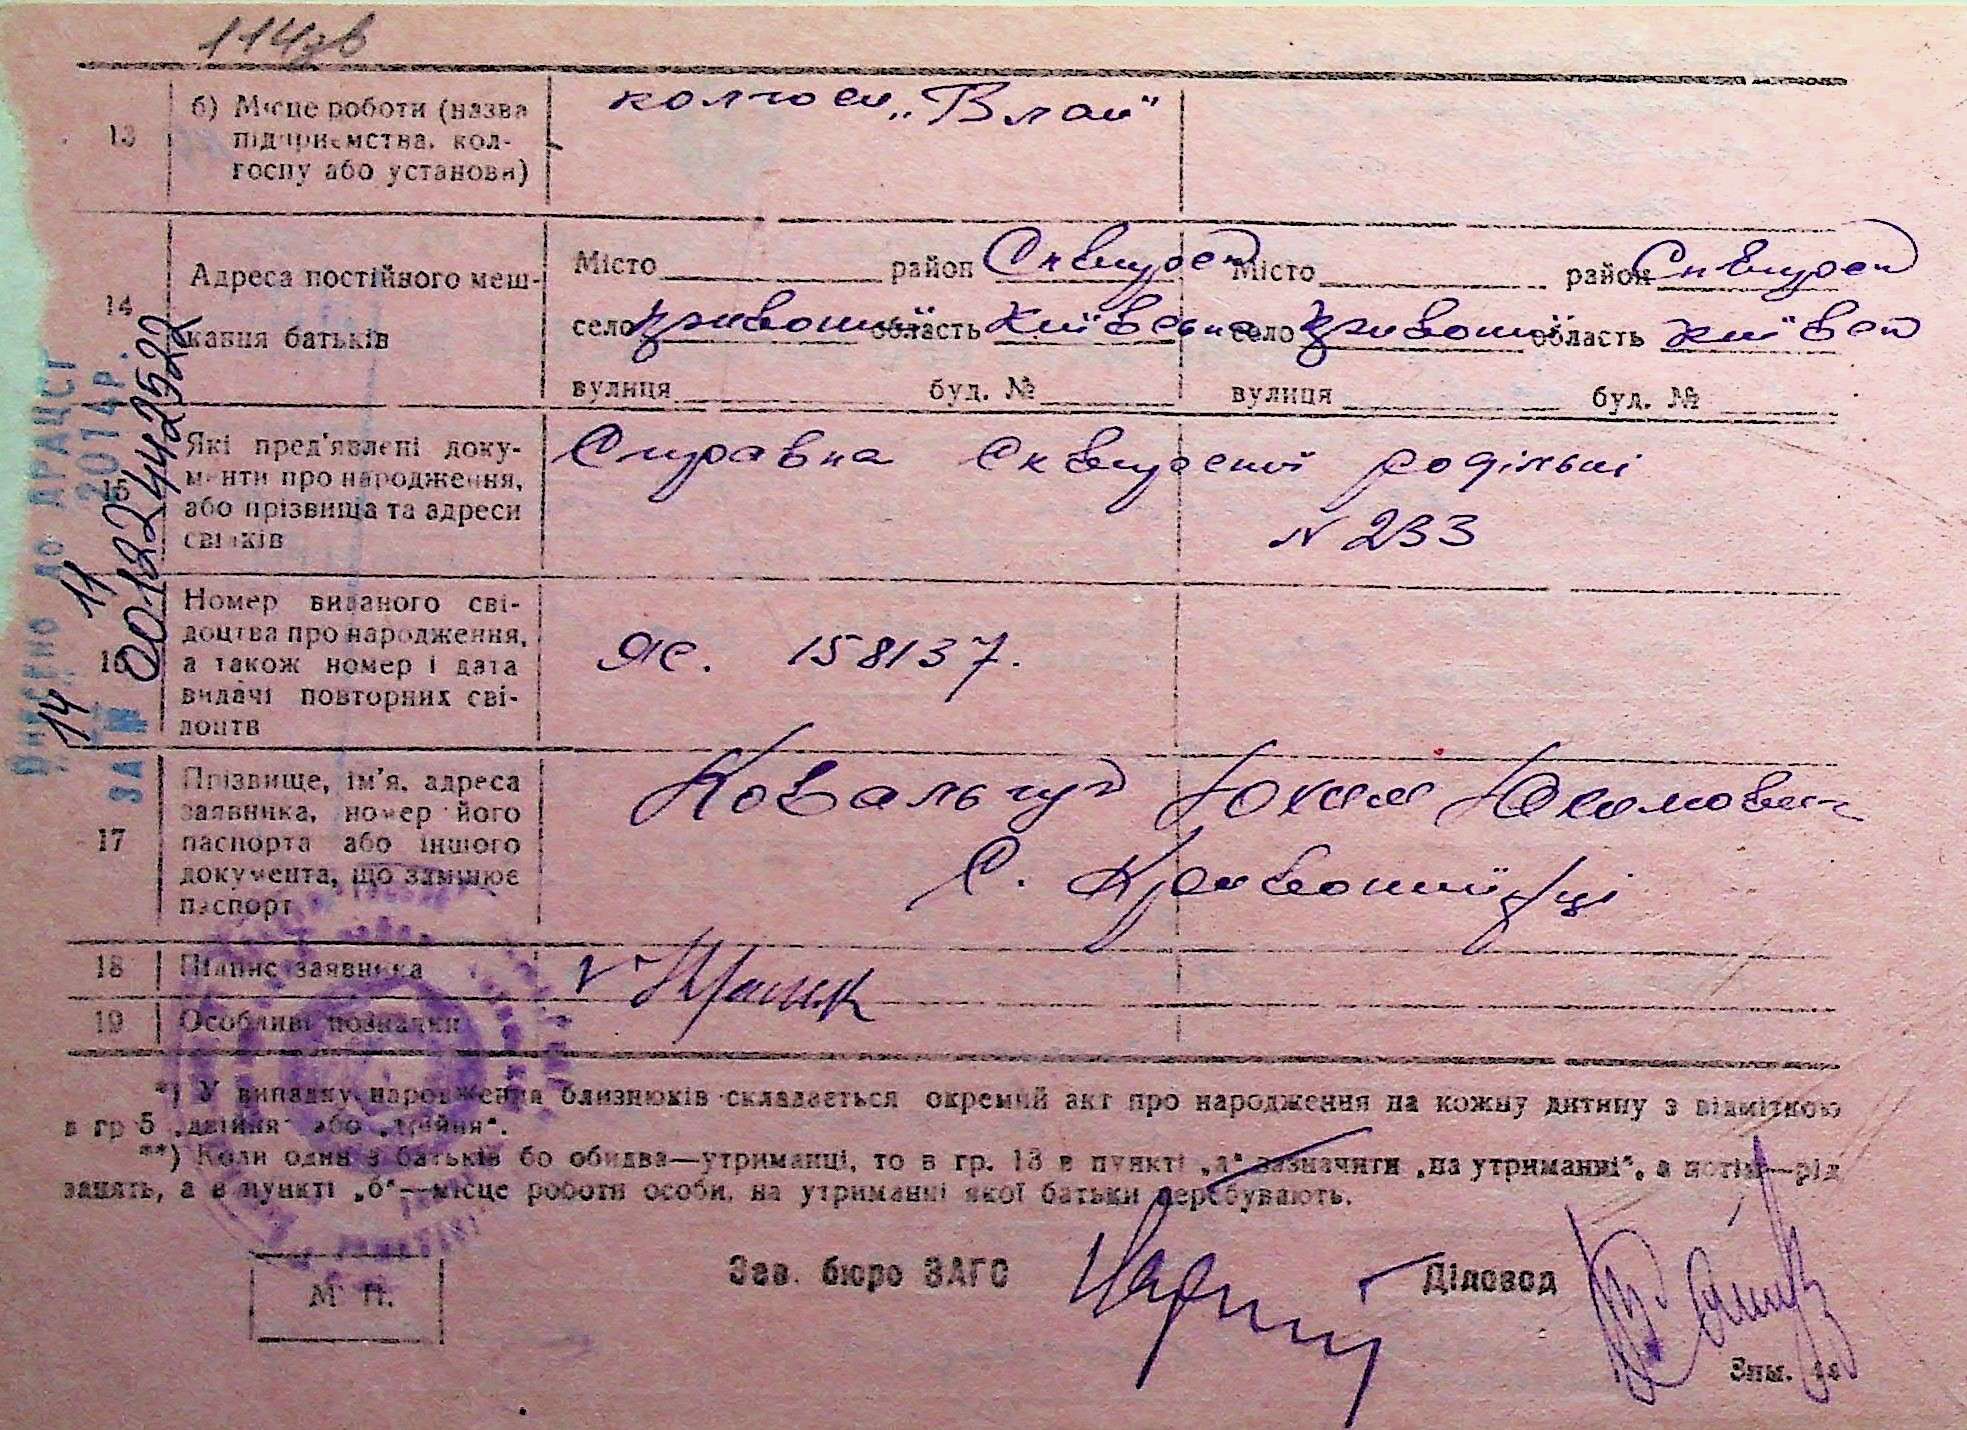 114зв
13 б) Місце роботи (назва підприємства, колгоспу або установи)
колгосп „Влад"
14 Адреса постійного мешкання батьків
Місто район Сквирськ
село область Київська
вулиця буд. №
Місто район Сквирськ
село область Київськ
вулиця буд. №
15 Які пред'явлені документи про народження, або прізвища та адреси свідків
Справка Сквирської родільні
N 233
16 Номер виданого свідоцтва про народження, а також номер і дата видачі повторних свідоцтв
ЯС. 158137.
17 Прізвище, ім'я, адреса заявника, номер його паспорта або іншого документа, що замінює паспорт
Ковальчук Юхим Юхимович
С. Кривошиїнці
18 Підпис заявника
19 Особливі познадки
*) У випадку народження близнюків складається окремий акт про народження на кожну дитину з відміткою
в гр 5 „двійня" або „трійня".
**) Коли один з батьків бо обидва—утриманці, то в гр. 13 в пункті „а" зазначити „на утриманні", а потім—рід
занять, а в пункті „б"—місце роботи особи, на утриманні якої батьки перебувають.
М П.
Зав. бюро ЗАГС
Діловод
Внесено до ДРАЦСГ
14 11 2014 р.
ЗА № 00182442522